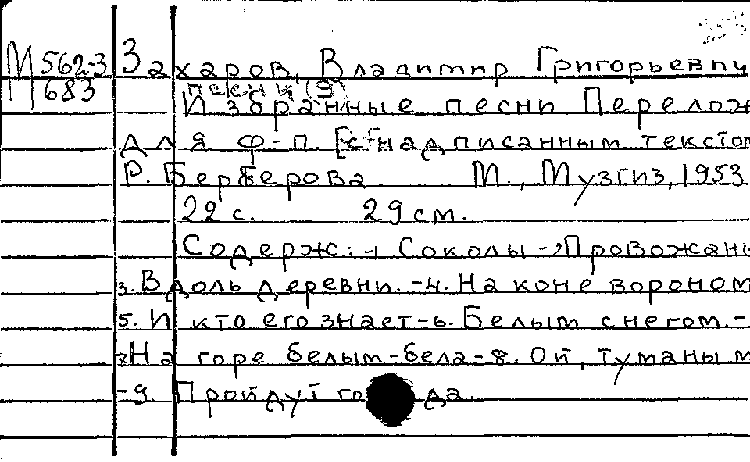 М 562-3 Захаров, Владимир Григорьевич
683 песни (9)
Избранные песни Перелож
для ф-п. [с надписанным текстом
Р. Берберова М., Музгиз, 1953
22 с. 29 см.
Содерж: 1 Соколы -2, Провожань
3. Вдоль деревни. -4. На коне вороном
5. И кто его знает -6. Белым снегом. -
7. На горе белым-бела -8. Ой, туманы м
-9. Пройдут го да.